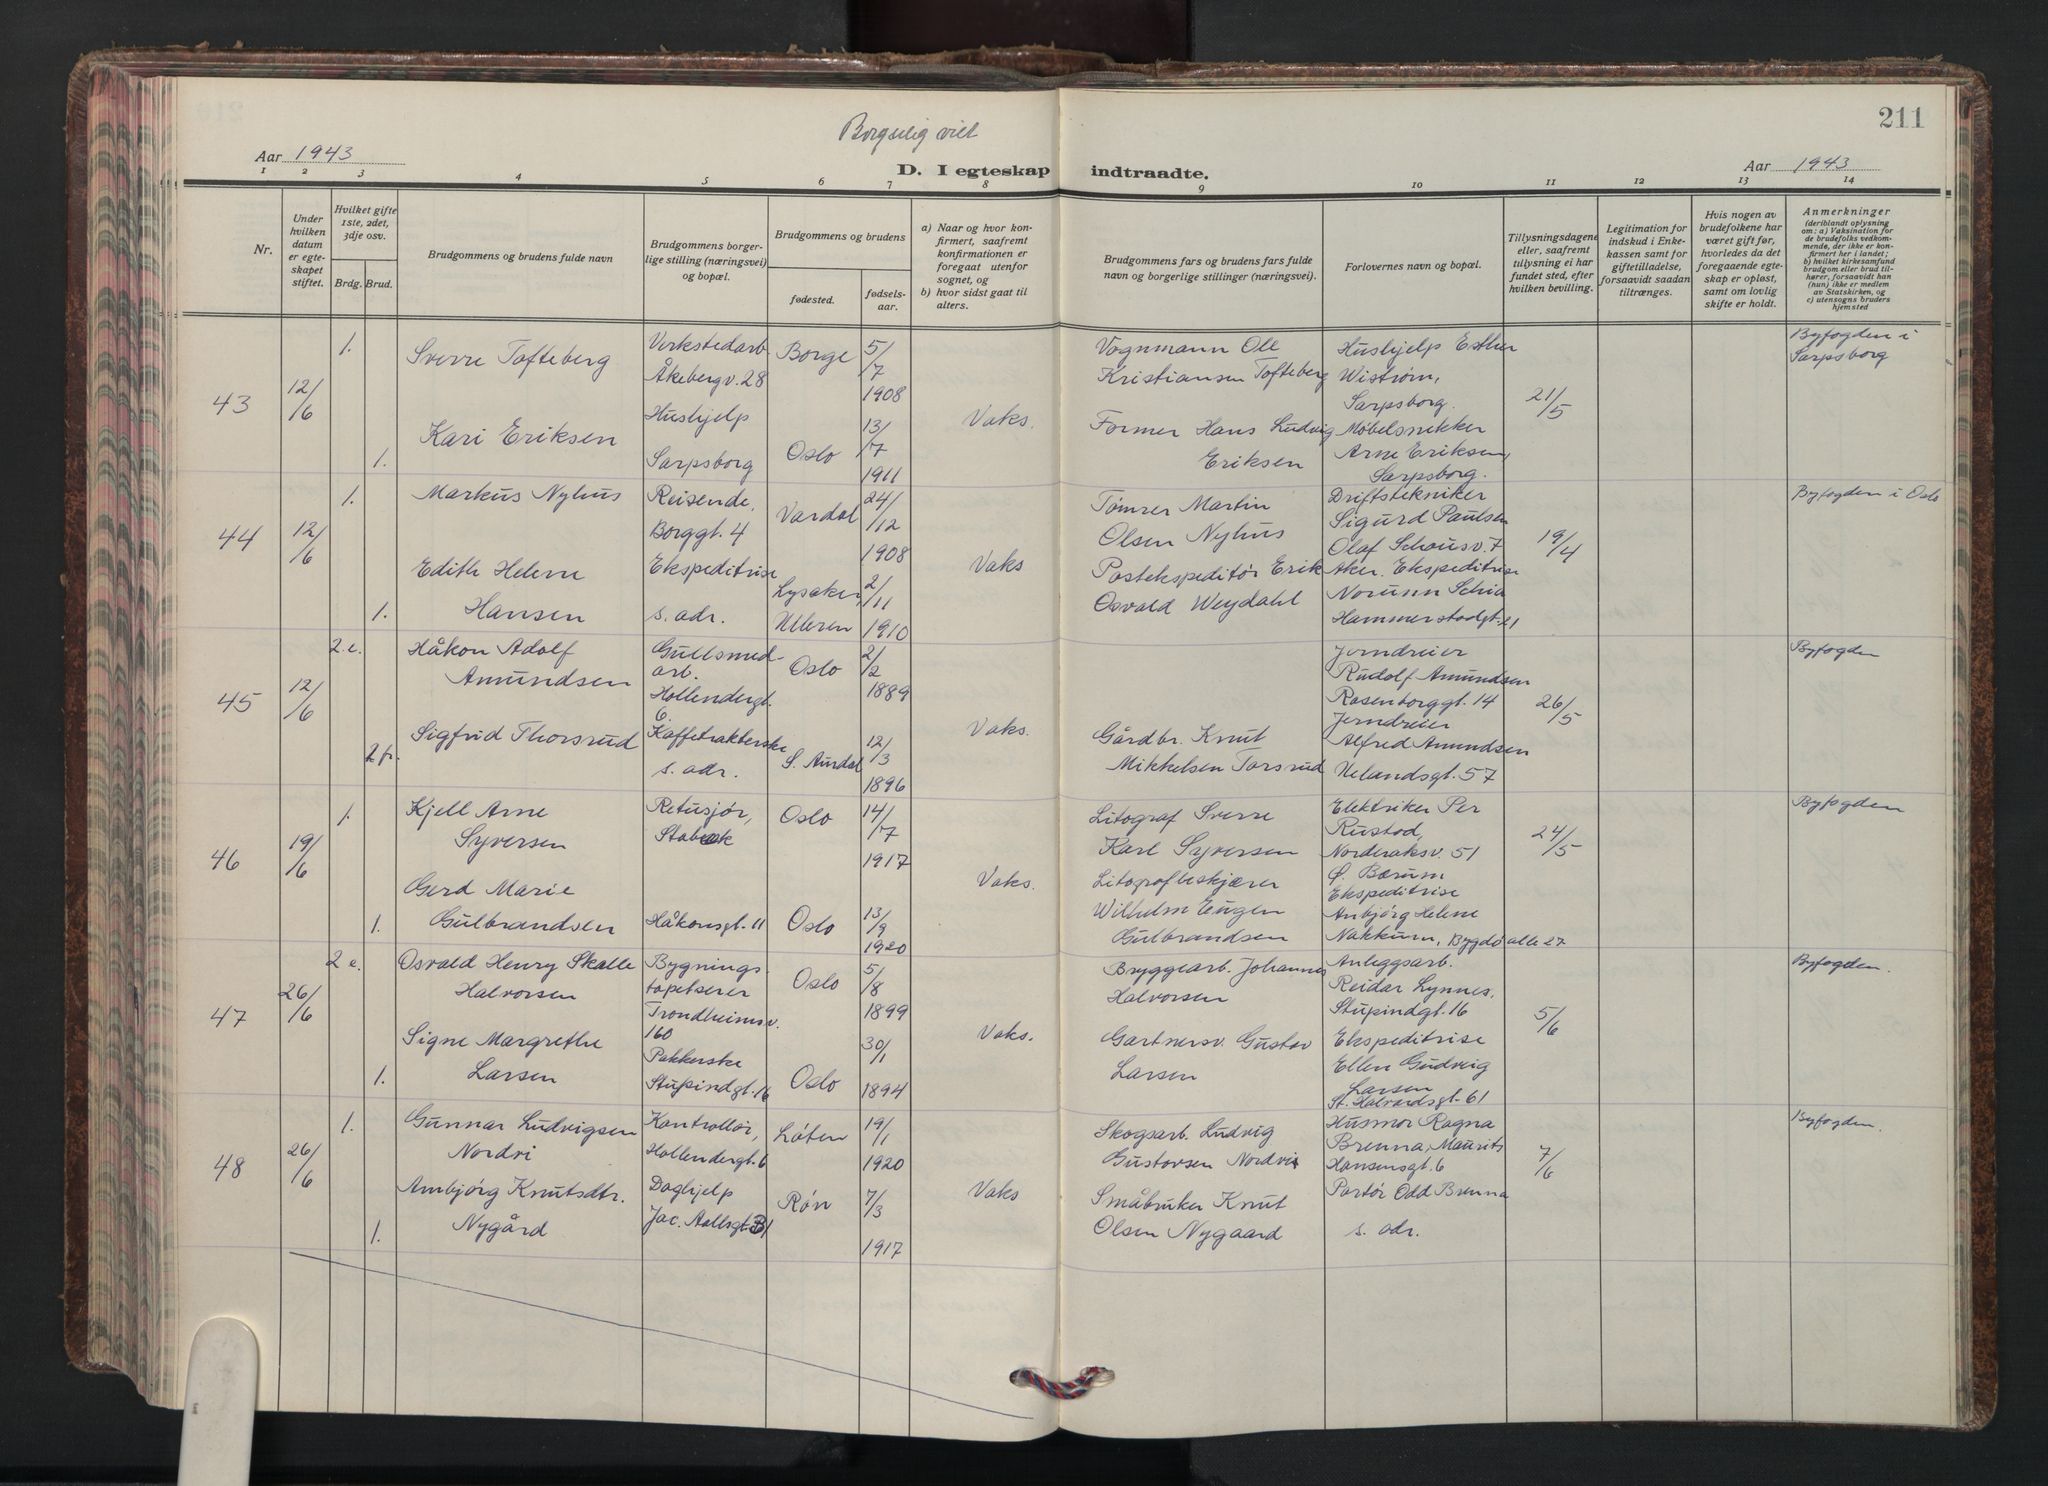 211
Borgerlig viet
Aar 1943
Aar 1943
D. I egteskap indtraadte.
1 2 3 4 5 6 7 8 9 10 11 12 13 14
Nr.
Under hvilken datum er egteskapet stiftet.
Hvilket gifte 1ste, 2det, 3dje osv.
Brdg. Brud.
Brudgommens og brudens fulde navn
Brudgommens borgerlige stilling (næringsvei) og bopæl.
Brudgommens og brudens
fødested.
fødselsaar.
a) Naar og hvor konfirmert, saafremt konfirmationen er foregaat utenfor sognet, og
b) hvor sidst gaat til alters.
Brudgommens fars og brudens fars fulde navn og borgerlige stillinger (næringsvei).
Forlovernes navn og bopæl.
Tillysningsdagene eller, saafremt tillysning ei har fundet sted, efter hvilken bevilling.
Legitimation for indskud i Enkekassen samt for giftetilladelse, forsaavidt saadan tiltrænges.
Hvis nogen av brudefolkene har været gift før, hvorledes da det foregaaende egteskap er opløst, samt om lovlig skifte er holdt.
Anmerkninger
(deriblandt oplysning om: a) Vaksination for de brudefolks vedkommende, der ikke er konfirmert her i landet; b) hvilket kirkesamfund brudgom eller brud tilhører, forsaavidt han (hun) ikke er medlem av Statskirken, og c) utensogns bruders hjemsted
43
12/6
1.
Sverre Tofteberg
Verkstedarb.
Åkebergv. 28
Borge
5/7
1908
Vognmann Ole
Kristiansen Tofteberg
Hushjelp Esther
Wistrøm,
Sarpsborg.
21/5
Byfogden i
Sarpsborg
1.
Kari Eriksen
Hushjelp
Sarpsborg
Oslo
13/7
1911
Vaks.
Former Hans Ludvig
Eriksen
Møbelsnekker
Arne Eriksen,
Sarpsborg.
44
12/6
1.
Markus Nyhus
Reisende,
Borggt. 4
Vardal
24/12
1908
Tømrer Martin
Olsen Nyhus
Driftstekniker
Sigurd Paulsen
Olaf Schousv. 7
19/4
Byfogden i Oslo
1.
Edith Helene
Hansen
Ekspeditrise
s. adr.
Lysaker,
Ulleren
2/11
1910
Vaks
Postekspeditør Erik
Osvald Weydahl
Aker. Ekspeditrise
Norunn Schia
Hammerstadgt. 21
45
12/6
2 e.
Håkon Adolf
Amundsen
Gullsmedarb.
Hollendergt.
6.
Oslo
2/2
1889
Jerndreier
Rudolf Amundsen
Rosenborggt. 14
26/5
Byfogden
2 fr.
Sigfrid Thorsrud
Kaffetrakterske
s. adr.
S. Aurdal
12/3
1896
Vaks.
Gårdbr. Knut
Mikkelsen Torsrud
Jerndreier
Alfred Amundsen
Helandsgt. 57
46
19/6
1.
Kjell Arne
Syversen
Retusjør,
Stabekk
Oslo
14/7
1917
Litograf Sverre
Karl Syversen
Elektriker Per
Rustad,
Norderaksv. 51
Ø. Bærum
24/5
Byfogden
1.
Gerd Marie
Gulbrandsen
Håkonsgt. 11
Oslo
13/9
1920
Vaks.
Litografbeskjærer
Wilhelm Eugen
Gulbrandsen
Ekspeditrise
Anbjørg Helene
Nakkum, Bygdø alle 27
47
26/6
2 e.
Osvald Henry Skalle
Halvorsen
Bygningstapetserer
Trondheimsv.
160
Oslo
5/8
1899
Bryggearb. Johannes
Halvorsen
Anleggsarb.
Reidar Lynnes,
Stupindgt. 16
5/6
Byfogden.
1.
Signe Margrethe
Larsen
Pakkerske
Stupindgt. 16
Oslo
30/1
1894
Vaks.
Gartnersv. Gustav
Larsen
Ekspeditrise
Ellen Gudvig
Larsen
St. Halvardsgt. 61
48
26/6
1.
Gunnar Ludvigsen
Nordvi
Kontrollør,
Hollendergt. 6
Løten
19/1
1920
Skogsarb. Ludvig
Gustavsen Nordvi
Husmor Ragna
Brenna, Maurits
Hansensgt. 6
7/6
Byfogden.
1.
Ambjörg Knutsdtr.
Nygård
Daghjelp
Jac. Aallsgt. 31
Røn
7/3
1917
Vaks
Småbruker Knut
Olsen Nygaard
Portør Odd Brenna
s. adr.